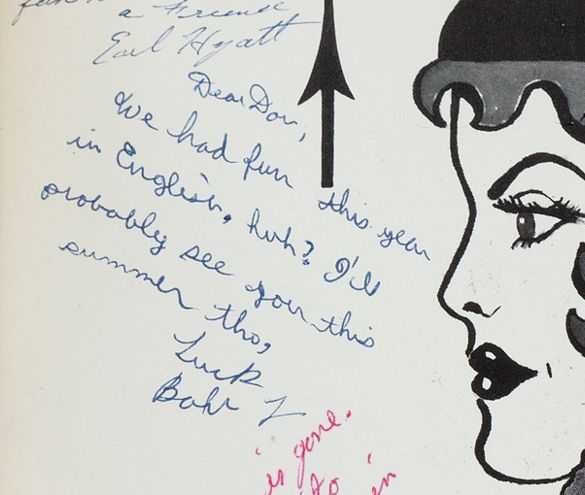 a Friend
Earl Hyatt
Dear Don,
We had fun this year
in English, huh? I'll
probably see you this
summer tho,
Luck
Bohr
is gone.
to in